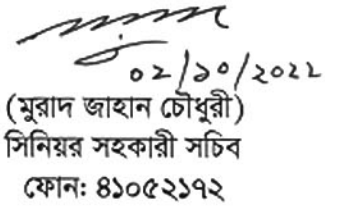 ০২/১০/২০২২
(মুরাদ জাহান চৌধুরী)
সিনিয়র সহকারী সচিব
ফোন: ৪১০৫২১৭২